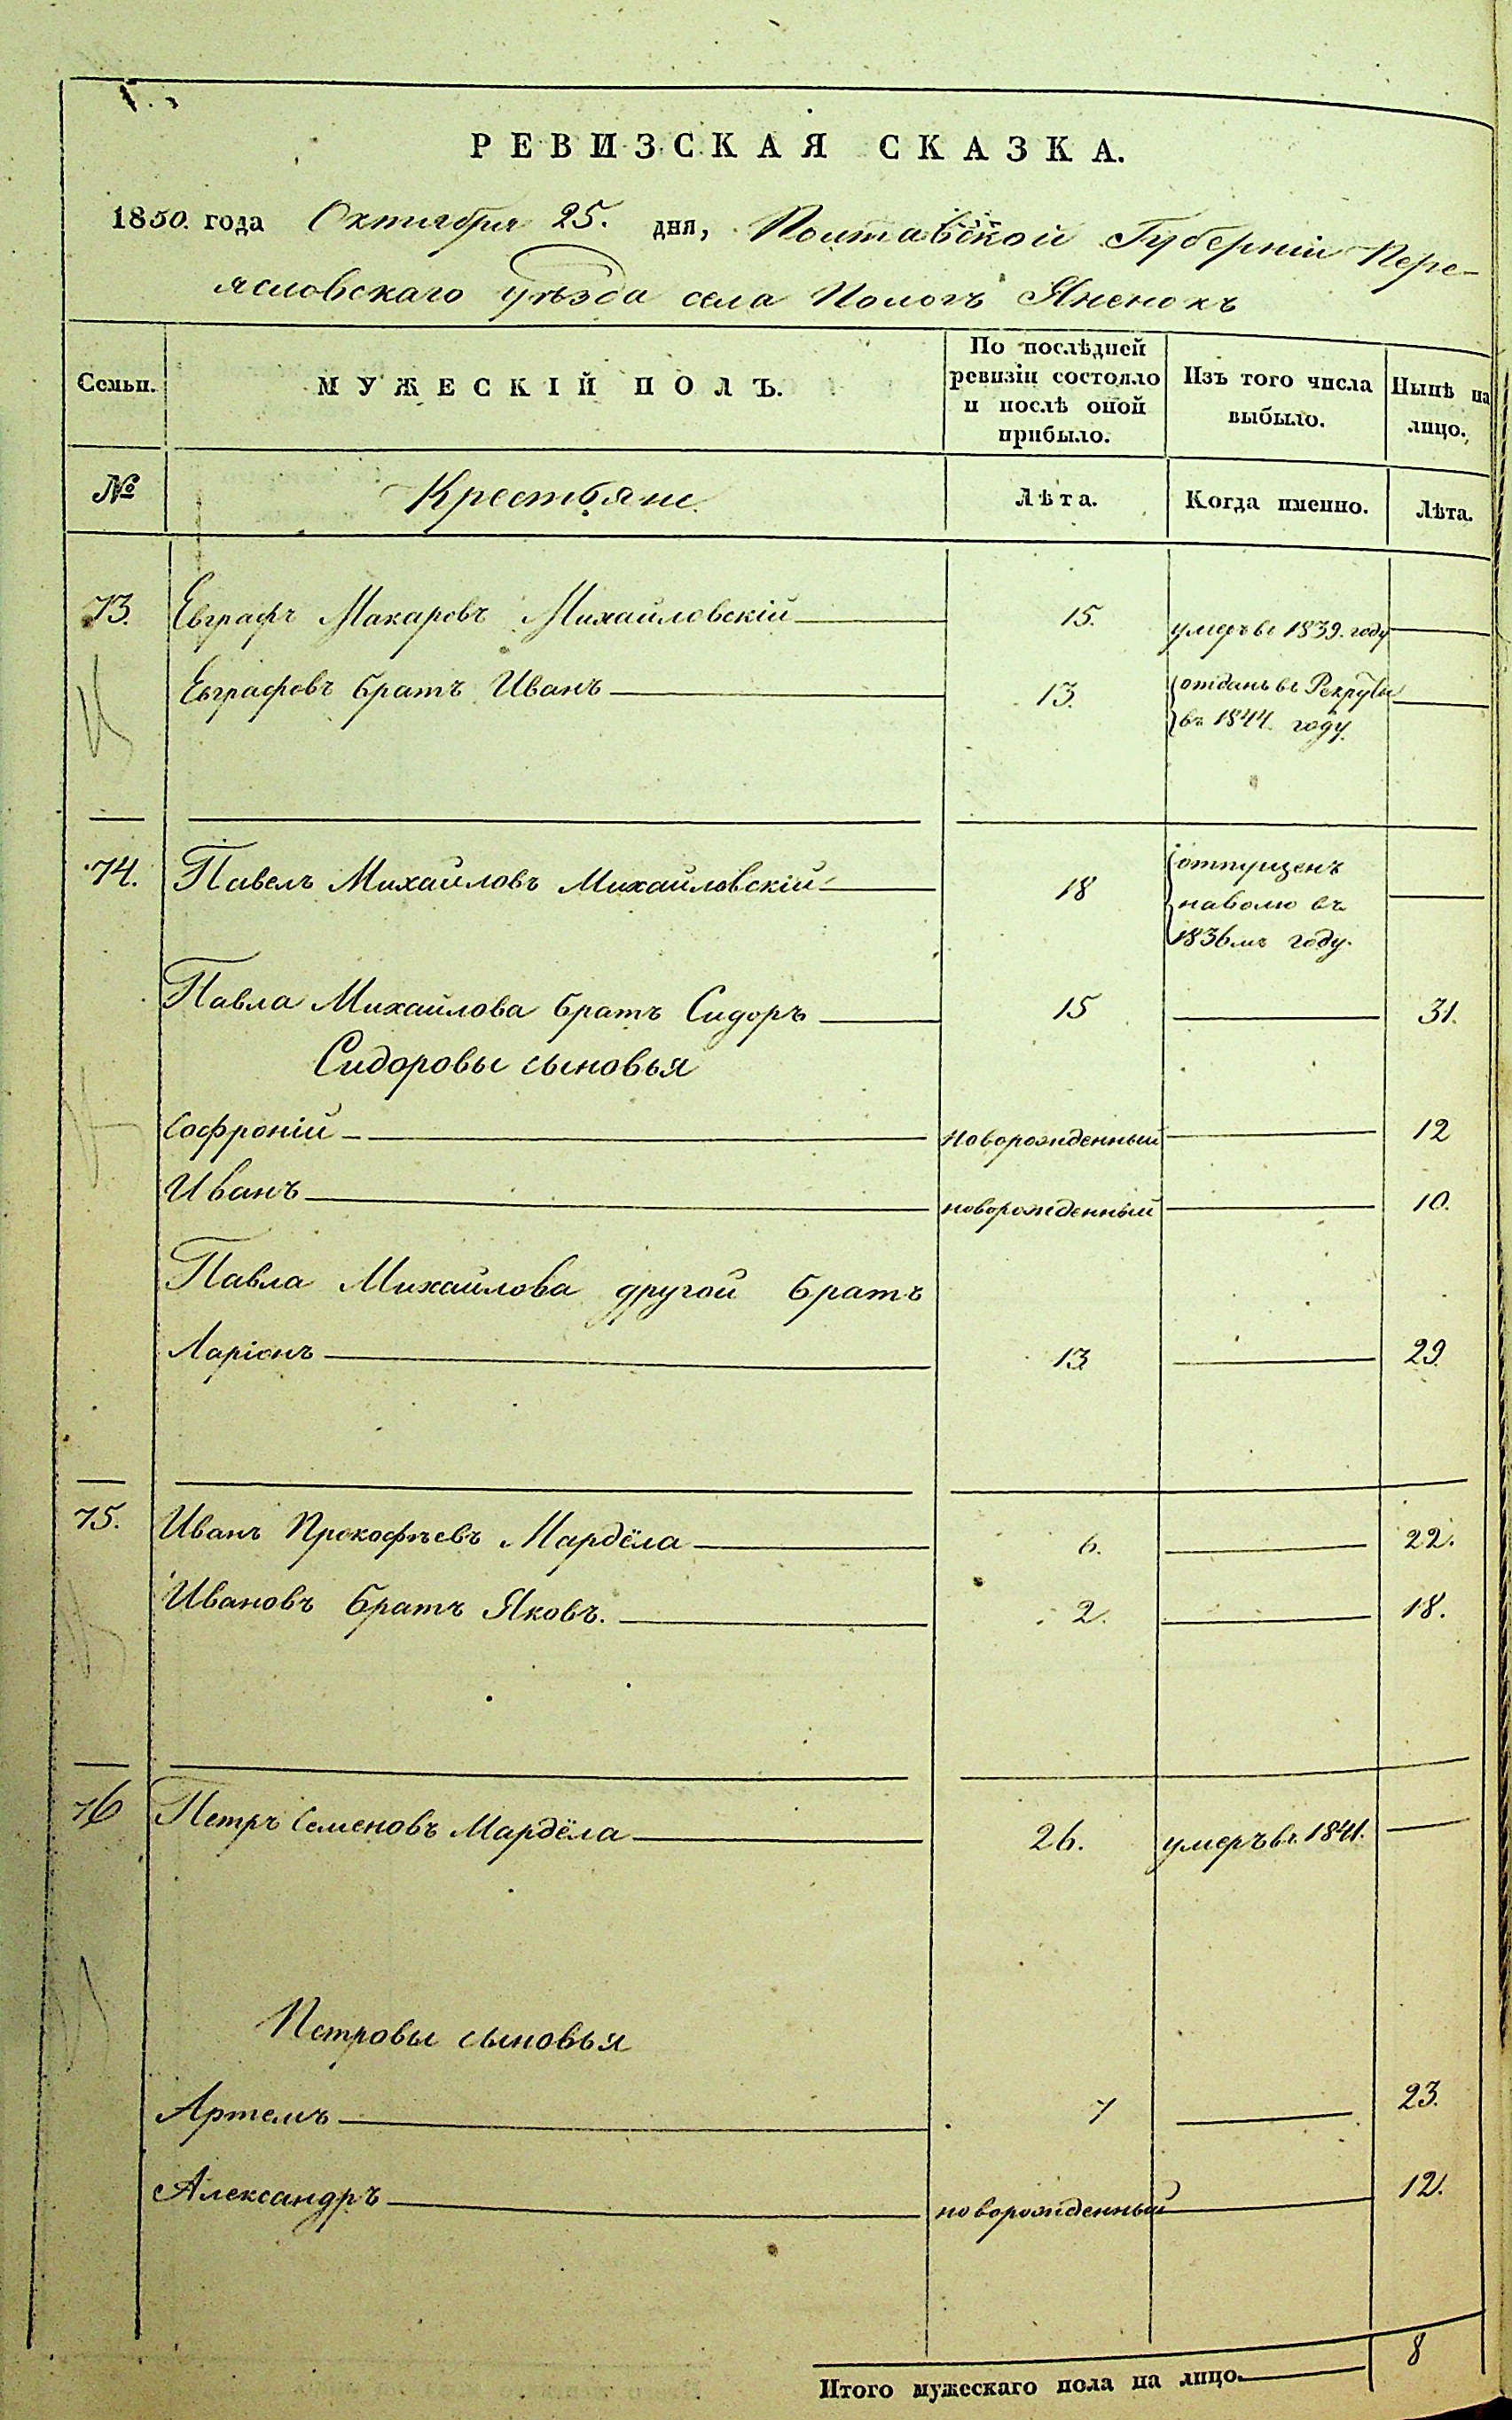 РЕВИЗСКАЯ СКАЗКА.
1850. года Октября 25. дня, Полтавской Губерніи Пере-
ясловскаго уѣзда села Пологъ Яненокъ
Семьи.
МУЖЕСКІЙ ПОЛЪ.
По послѣдней
ревизіи состояло
и послѣ оной
прибыло.
Изъ того числа
выбыло.
Нынѣ на
лицо.
№ Крестьяне Лѣта. Когда именно. Лѣта.
73. Евграфъ Макаровъ Михайловскій 15. умеръ въ 1839. году
Евграфовъ братъ Иванъ 13. отданъ въ Рекруты
въ 1844. году
74. Павелъ Михайловъ Михайловскій 18 отпущенъ
наволю въ
1836мъ году.
Павла Михайлова братъ Сидоръ 15 31.
Сидоровы сыновья
Софроній новорожденный 12
Иванъ новорожденный 10.
Павла Михайлова другой братъ
Ларіонъ 13 29.
75. Иванъ Прокофьевъ Мардёла 6. 22.
Ивановъ братъ Яковъ. 2. 18.
76 Петръ Семеновъ Мардёла 26. умеръ въ 1841.
Петровы сыновья
Артемъ 7 23.
Александръ новорожденный 12.
Итого мужескаго пола на лицо 8